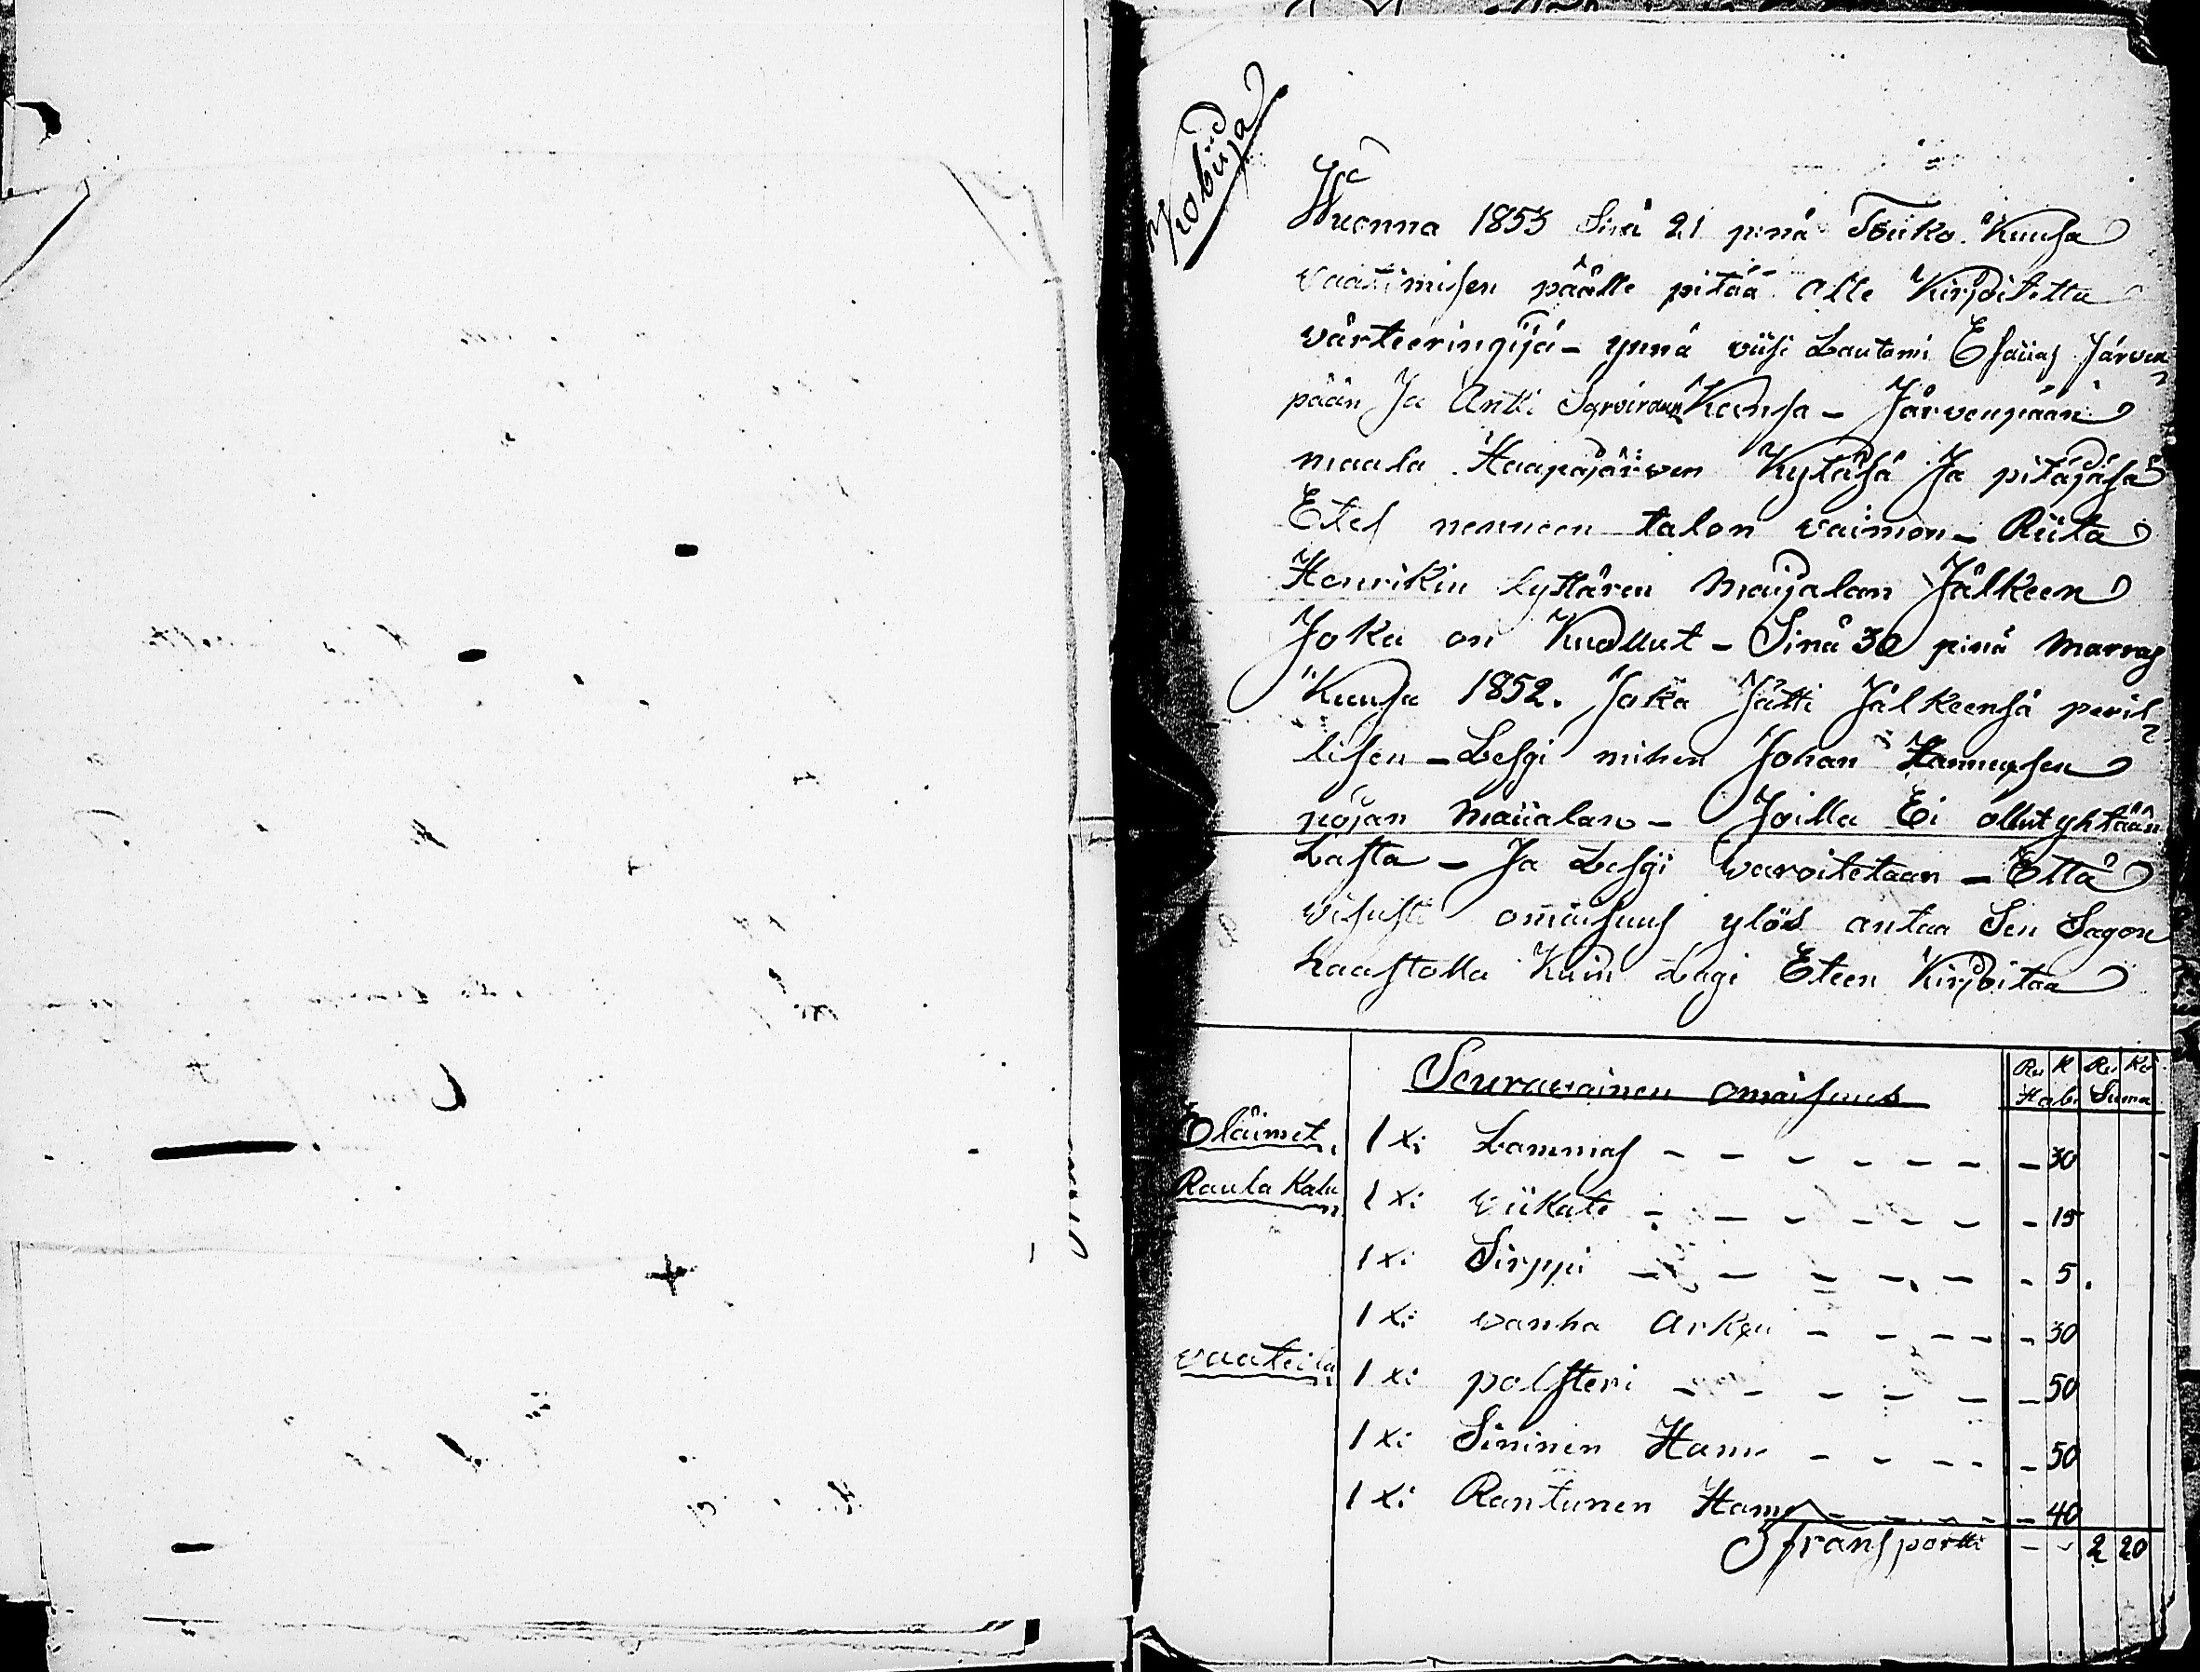 Kobiija
Wuonna 1853 Sinä 21 pnä Touko Kuusa
vaatimisen päälle pitää Alle Kirjoitettu
wärteeringijä - ynnä viisi Lautami Esaias Järven
pään Ja Anti Kansa - Järvenpään
maala Haapajärwen Kyläsä Ja pitäjäsä
Etes mennen talon vaimon - Riita
Henrikin tyttären Maijalan Jälkeen
Joka on Kuollut - Sinä 30 pinä Marras
Kuusa 1852. Joka Jätti Jälkeensä peril
lisen - Lesgi mihen Johan Hannuxsen
pojan Maiialan - Joilla Ei ollut yhtään
Lasta - Ja Lesgi waroitetaan - Että
visusti omaisuus ylös antaa Sen Sagon
haastolla Kuin Lagi Eteen Kirjoitaa
Seurawainen omaisuus Ru K Ru Ko
Hob. Suma
Eläimet 1 xi Lammas - - - - - - - 30
Rauta Kalu 1 xi viikate - - - - - - - 15
1 xi Sirppi - - - - - - 5.
1 xi vanha Arkku - - - - - 30
vaateita 1 xi polsteri - - - - - - 50
1 xi Sininen Hame - - - - - 50
1 xi Rantunen Hame - - - - - 40
Transportti - - 2 20